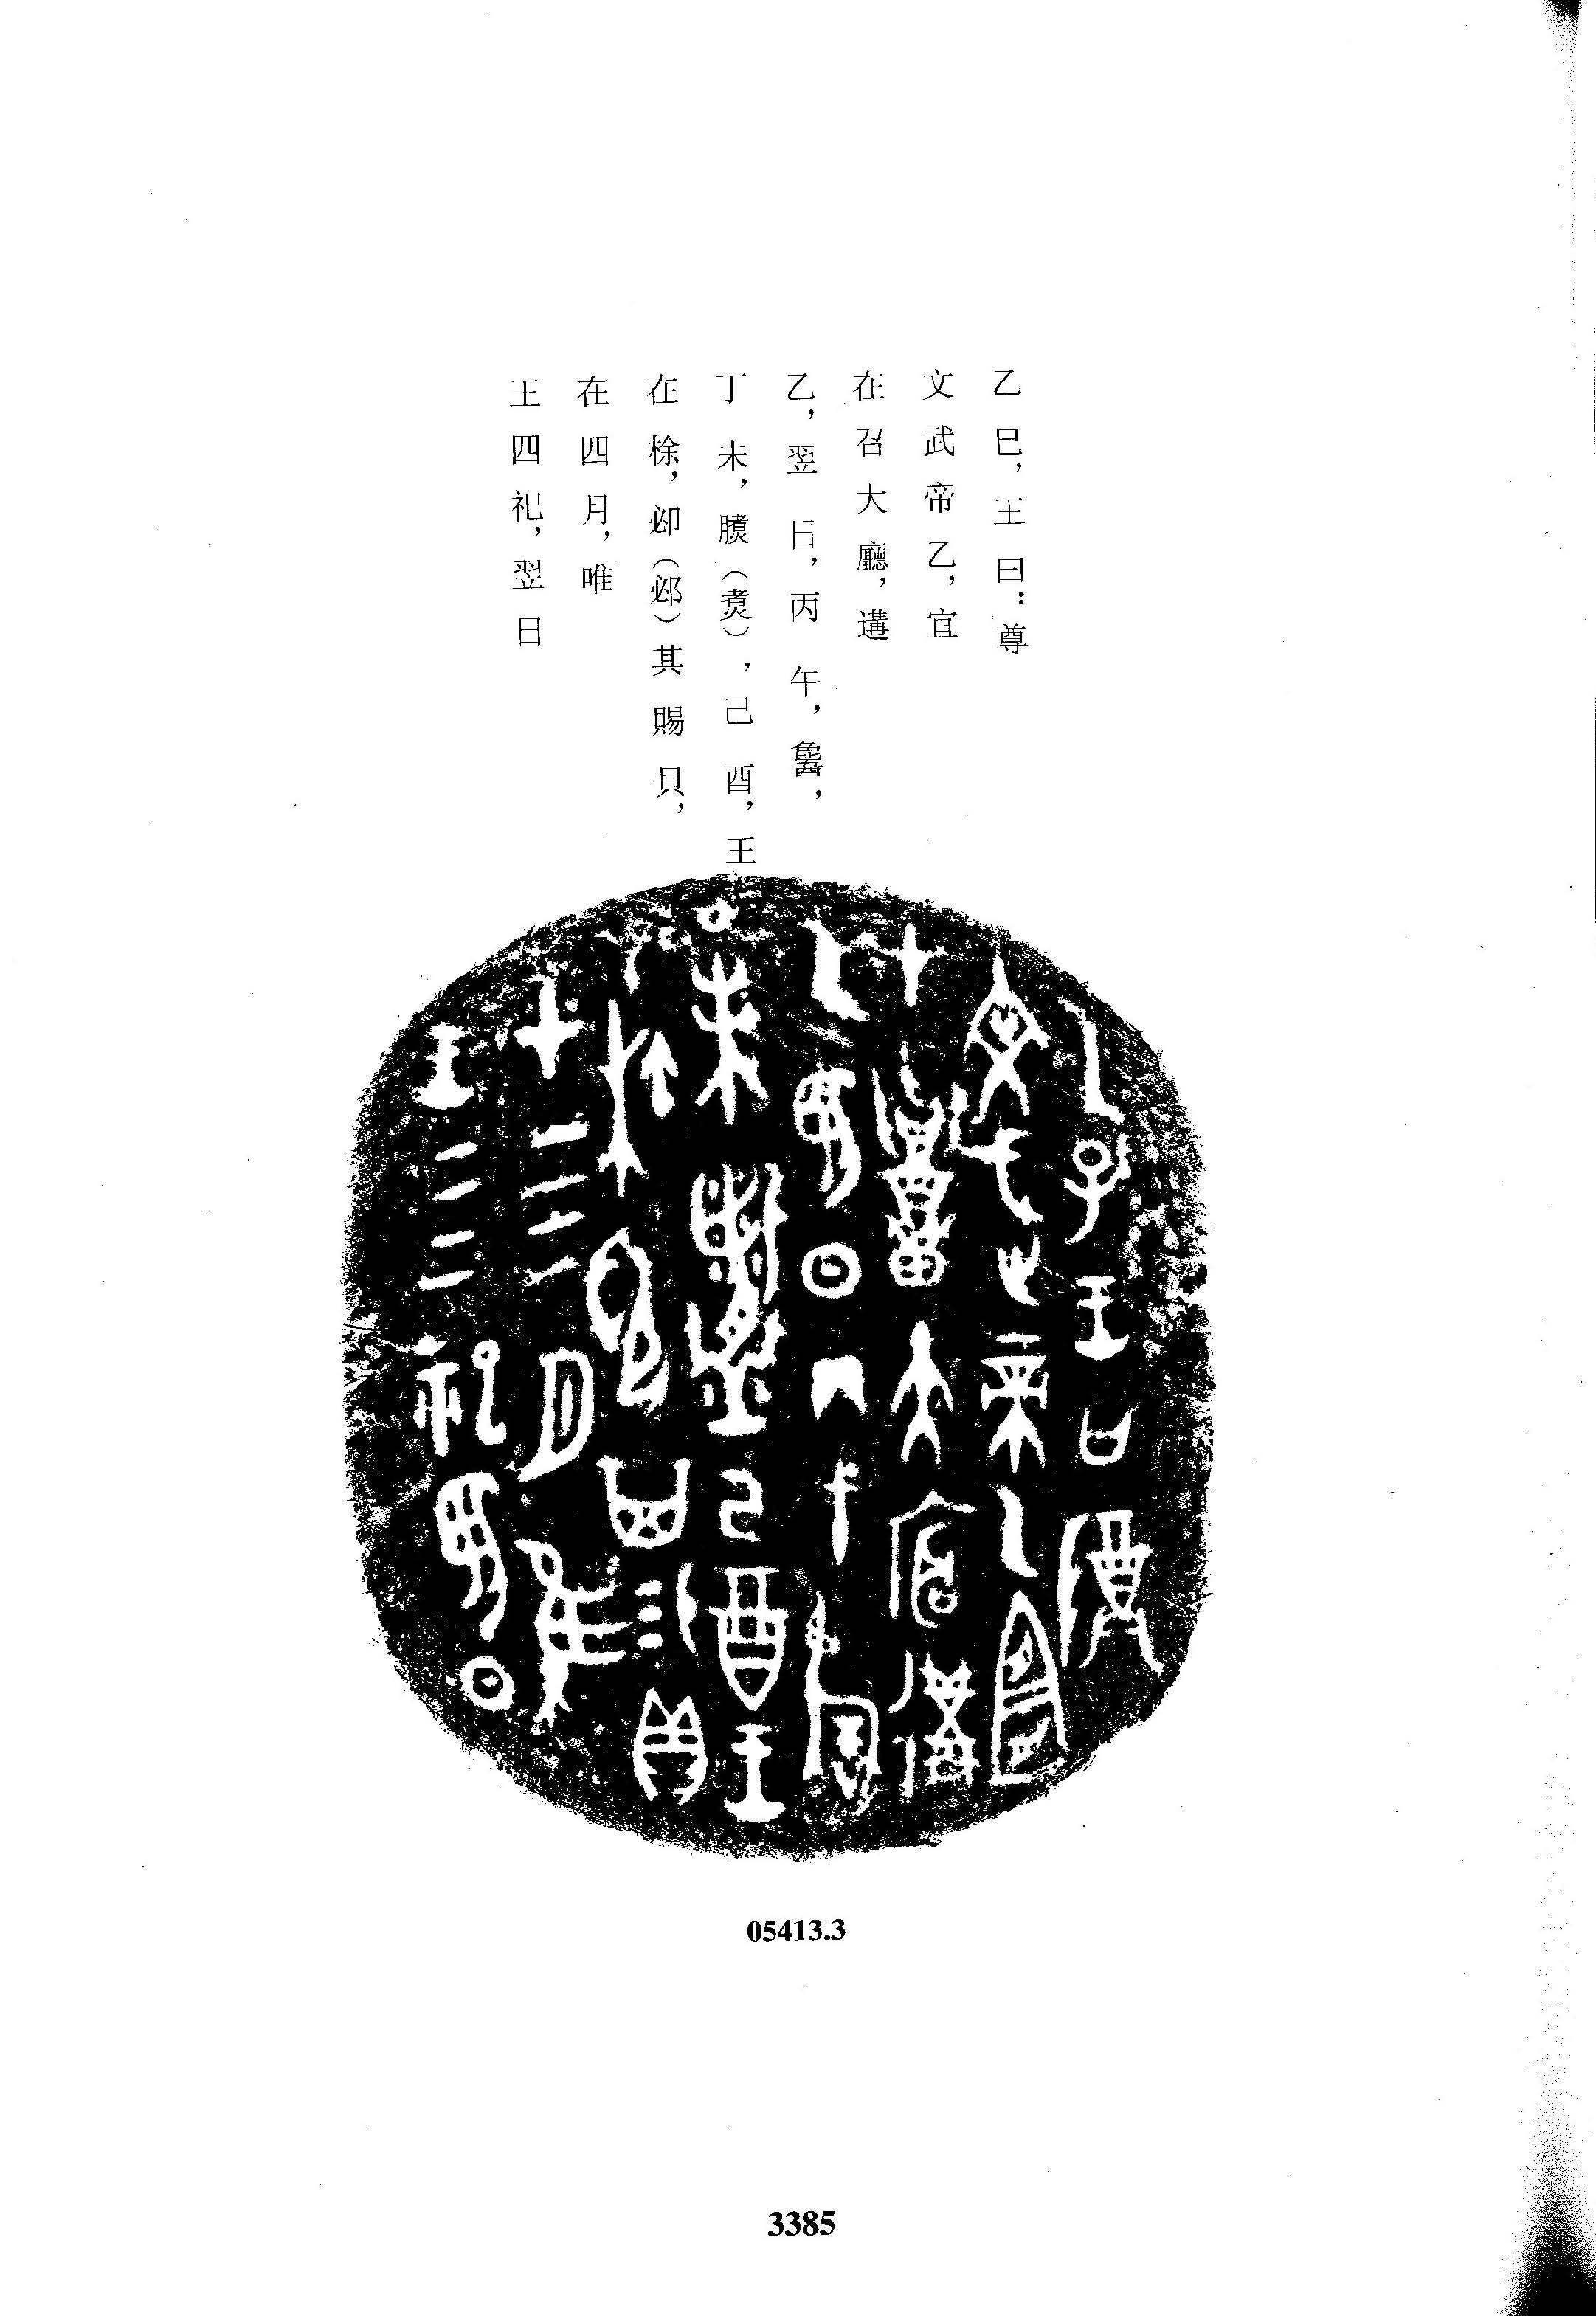 乙巳，王曰：尊
文武帝乙，宜
在召大廳，遘
乙，翌日，丙午，𩵦，
丁未，䝩（煮），己酉，王
在梌，𠨘（邲）其賜貝，
在四月，唯
王四祀，翌日
05413.3
3385